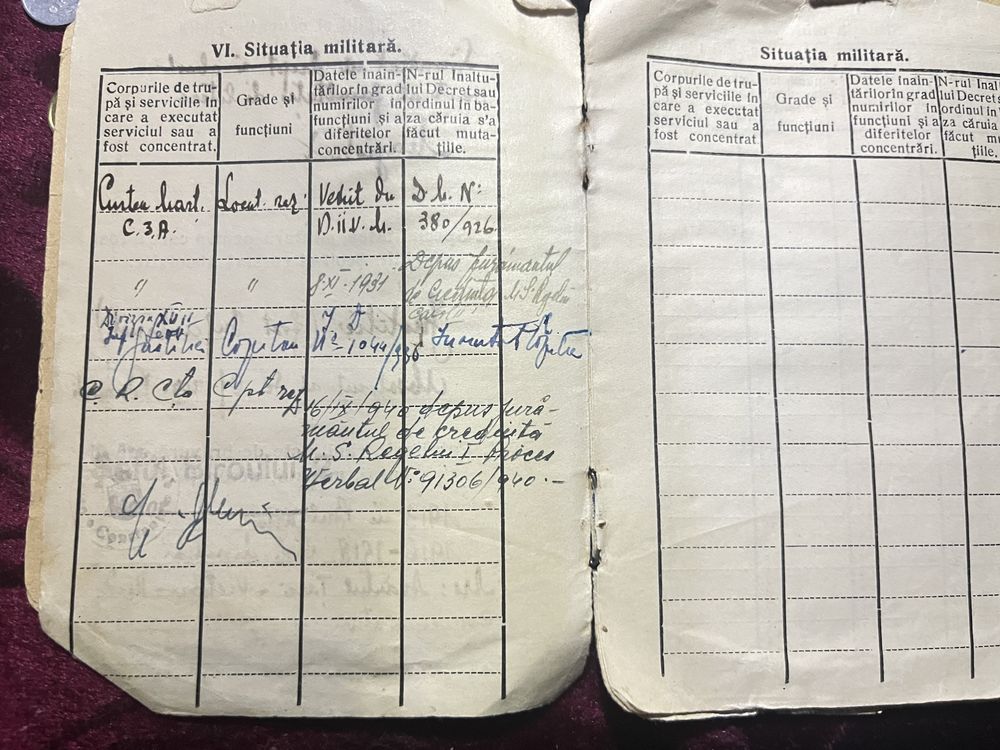 VI. Situația militară.
Corpurile de tru-
pă și serviciile în
care a executat
serviciul sau a
fost concentrat.
Grade și
funcțiuni
Datele înain-
tărilor în grad
numirilor în
funcțiuni și a
diferitelor
concentrări.
N-rul Inaltu-
lui Decret sau
ordinul în ba-
za căruia s'a
făcut muta-
țiile.
C.3.A.
Locot. rez.
Venit cu
D. N:
380/926
"
"
8 XI 1931
Depus jurământul
de credință M.S. Regelui
Justiției
Capitan
Nº 1044/936
Cpt rez
16/IX/940 depus jură-
mântul de credință
M. S. Regelui I. Proces
Verbal Nº 91306/940.-
Situația militară.
Corpurile de tru-
pă și serviciile în
care a executat
serviciul sau a
fost concentrat
Grade și
funcțiuni
Datele înain-
tărilor în grad
numirilor în
funcțiuni și a
diferitelor
concentrări.
N-rul Inal
lui Decret
ordinul în
za căruia
făcut mu
țiile.